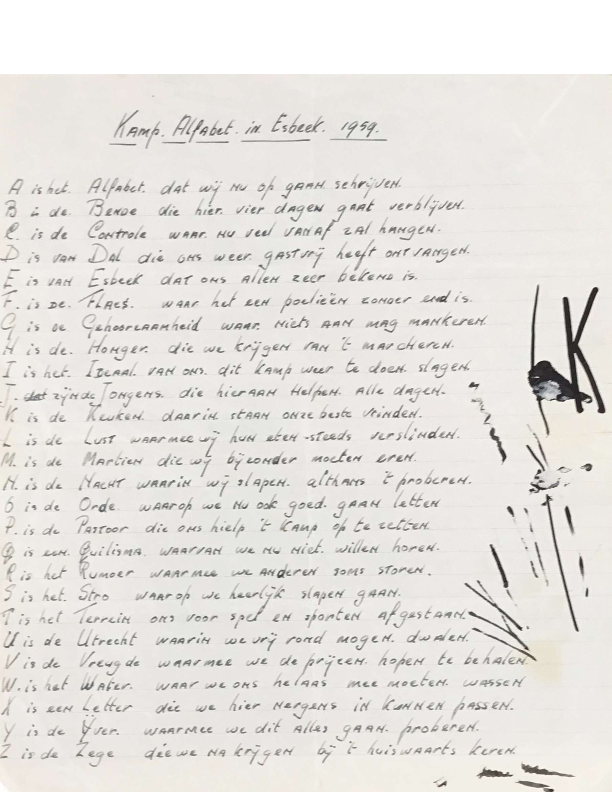 Kamp. Alfabet. in. Esbeek. 1959.
A is het. Alfabet. dat wij nu op gaan schrijven.
B is de. Bende die hier. vier dagen gaat verblijven.
C. is de Controle waar. nu veel vanaf zal hangen.
D is van Dal die ons weer. gastvrij heeft ontvangen.
E is van Esbeek dat ons allen zeer bekend is.
F. is de. Flaes. waar het een poelieën zonder end is.
G is de Gehoorzaamheid waar. niets aan mag mankeren.
H is de. Honger. die we krijgen van 't marcheren.
I is het. Ideaal van ons. dit kamp weer te doen slagen.
J. zijn de Jongens. die hieraan helpen. alle dagen.
K is de Keuken. daarin staan onze beste vrinden.
L is de Lust waarmee wij hun eten steeds verslinden.
M. is de Martien die wij bijzonder moeten eren.
N. is de Nacht waarin wij slapen. althans 't proberen.
O is de Orde. waarop we nu ook goed. gaan letten
P. is de Pastoor die ons hielp 't kamp op te zetten.
Q is een Quilisma. waarvan we nu niet. willen horen.
R is het Rumoer waarmee we anderen soms storen.
S is het. Stro waarop we heerlijk slapen gaan.
T is het Terrein ons voor spel en sporten afgestaan.
U is de Utrecht waarin we vrij rond mogen. dwalen.
V is de Vreugde waarmee we de prijzen. hopen te behalen.
W. is het Water. waar we ons helaas mee moeten. wassen
X is een Letter die we hier nergens in kunnen passen.
Y is de Yver. waarmee we dit alles gaan. proberen.
Z is de Zege die we na krijgen bij 't huiswaarts keren.
K